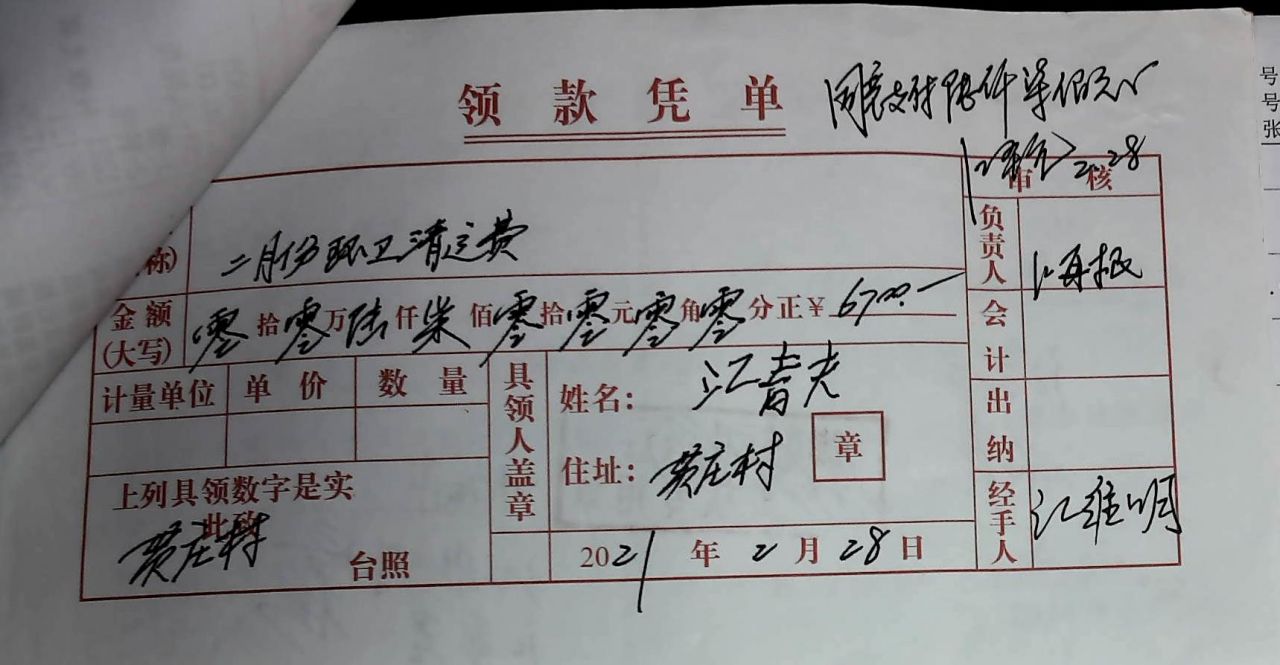 领款凭单
同意支付陆仟柒佰元
2.28
审核
称)
二月份环卫清运费
负责人
金额(大写)
零拾零万陆仟柒佰零拾零元零角零分正¥6700.—
会计
计量单位 单价 数量
具领人盖章
姓名:江青光
出纳
住址:贾庄村
章
上列具领数字是实
此致
贾庄村
台照
2021年2月28日
经手人
江维明
号
号
张